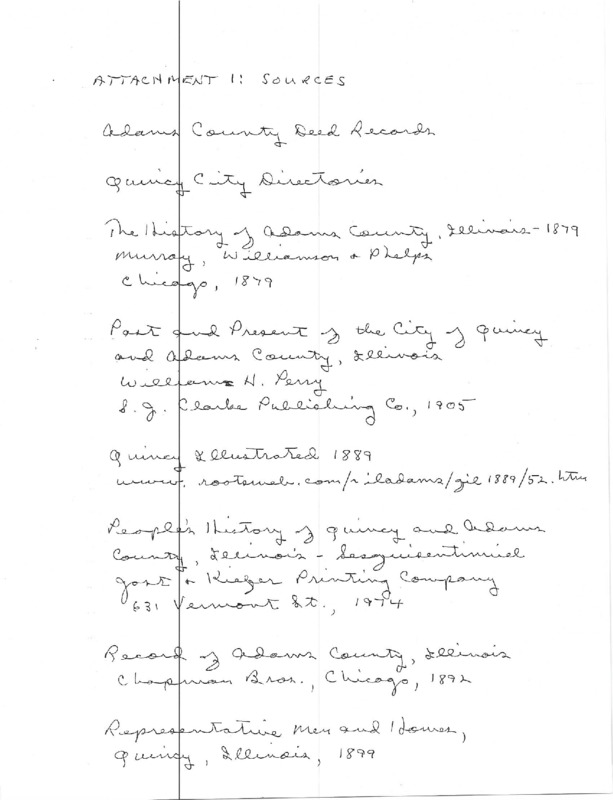 ATTACHMENT 1: SOURCES
Adams County Deed Records
Quincy City Directories
The History of Adams County, Illinois - 1879
Murray, Williamson & Phelps
Chicago, 1879
Past and Present of the City of Quincy
and Adams County, Illinois
William H. Perry
S. J. Clarke Publishing Co., 1905
Quincy Illustrated 1889
www.rootsweb.com/~iladams/gil1889/52.htm
People's History of Quincy and Adams
County, Illinois - Sesquisentinnial
Jost & Kiefer Printing Company
631 Vermont St., 1974
Record of Adams County, Illinois
Chapman Bros., Chicago, 1892
Representative Men and Homes,
Quincy, Illinois, 1899